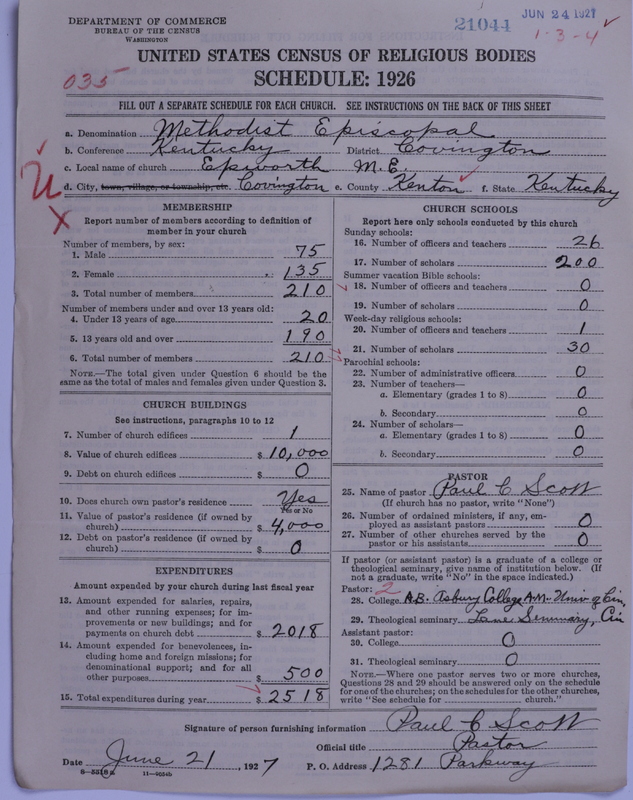 DEPARTMENT OF COMMERCE
BUREAU OF THE CENSUS
WASHINGTON
21044
JUN 24 1927
1-3-4
UNITED STATES CENSUS OF RELIGIOUS BODIES
SCHEDULE: 1926
035
FILL OUT A SEPARATE SCHEDULE FOR EACH CHURCH. SEE INSTRUCTIONS ON THE BACK OF THIS SHEET
a. Denomination Methodist Episcopal
b. Conference Kentucky District Covington
c. Local name of church Epworth M.E.
d. City, town, village, or township, etc. Covington e. County Kenton f. State Kentucky
U
X
MEMBERSHIP
Report number of members according to definition of member in your church
Number of members, by sex:
1. Male 75
2. Female 135
3. Total number of members 210
Number of members under and over 13 years old:
4. Under 13 years of age 20
5. 13 years old and over 190
6. Total number of members 210
NOTE.—The total given under Question 6 should be the
same as the total of males and females given under Question 3.
CHURCH BUILDINGS
See instructions, paragraphs 10 to 12
7. Number of church edifices 1
8. Value of church edifices $ 10,000
9. Debt on church edifices $ 0
10. Does church own pastor's residence Yes
Yes or No
11. Value of pastor's residence (if owned by
church) $ 4,000
12. Debt on pastor's residence (if owned by
church) $ 0
EXPENDITURES
Amount expended by your church during last fiscal year
13. Amount expended for salaries, repairs,
and other running expenses; for im-
provements or new buildings; and for
payments on church debt $ 2018
14. Amount expended for benevolences, in-
cluding home and foreign missions; for
denominational support; and for all
other purposes $ 500
15. Total expenditures during year $ 2518
CHURCH SCHOOLS
Report here only schools conducted by this church
Sunday schools:
16. Number of officers and teachers 26
17. Number of scholars 200
Summer vacation Bible schools:
18. Number of officers and teachers 0
19. Number of scholars 0
Week-day religious schools:
20. Number of officers and teachers 1
21. Number of scholars 30
Parochial schools:
22. Number of administrative officers 0
23. Number of teachers—
a. Elementary (grades 1 to 8) 0
b. Secondary 0
24. Number of scholars—
a. Elementary (grades 1 to 8) 0
b. Secondary 0
PASTOR
25. Name of pastor Paul C Scott
(If church has no pastor, write "None")
26. Number of ordained ministers, if any, em-
ployed as assistant pastors 0
27. Number of other churches served by the
pastor or his assistants 0
If pastor (or assistant pastor) is a graduate of a college or
theological seminary, give name of institution below. (If
not a graduate, write "No" in the space indicated.)
Pastor: 2
28. College A.B. Asbury College A.M. Univ of Cin
29. Theological seminary Lane Seminary, Cin
Assistant pastor:
30. College 0
31. Theological seminary 0
NOTE.—Where one pastor serves two or more churches,
Questions 28 and 29 should be answered only on the schedule
for one of the churches; on the schedules for the other churches,
write "See schedule for church."
Signature of person furnishing information Paul C Scott
Official title Pastor
Date June 21, 1927 P. O. Address 1281 Parkway
8-5318a 11-9054b